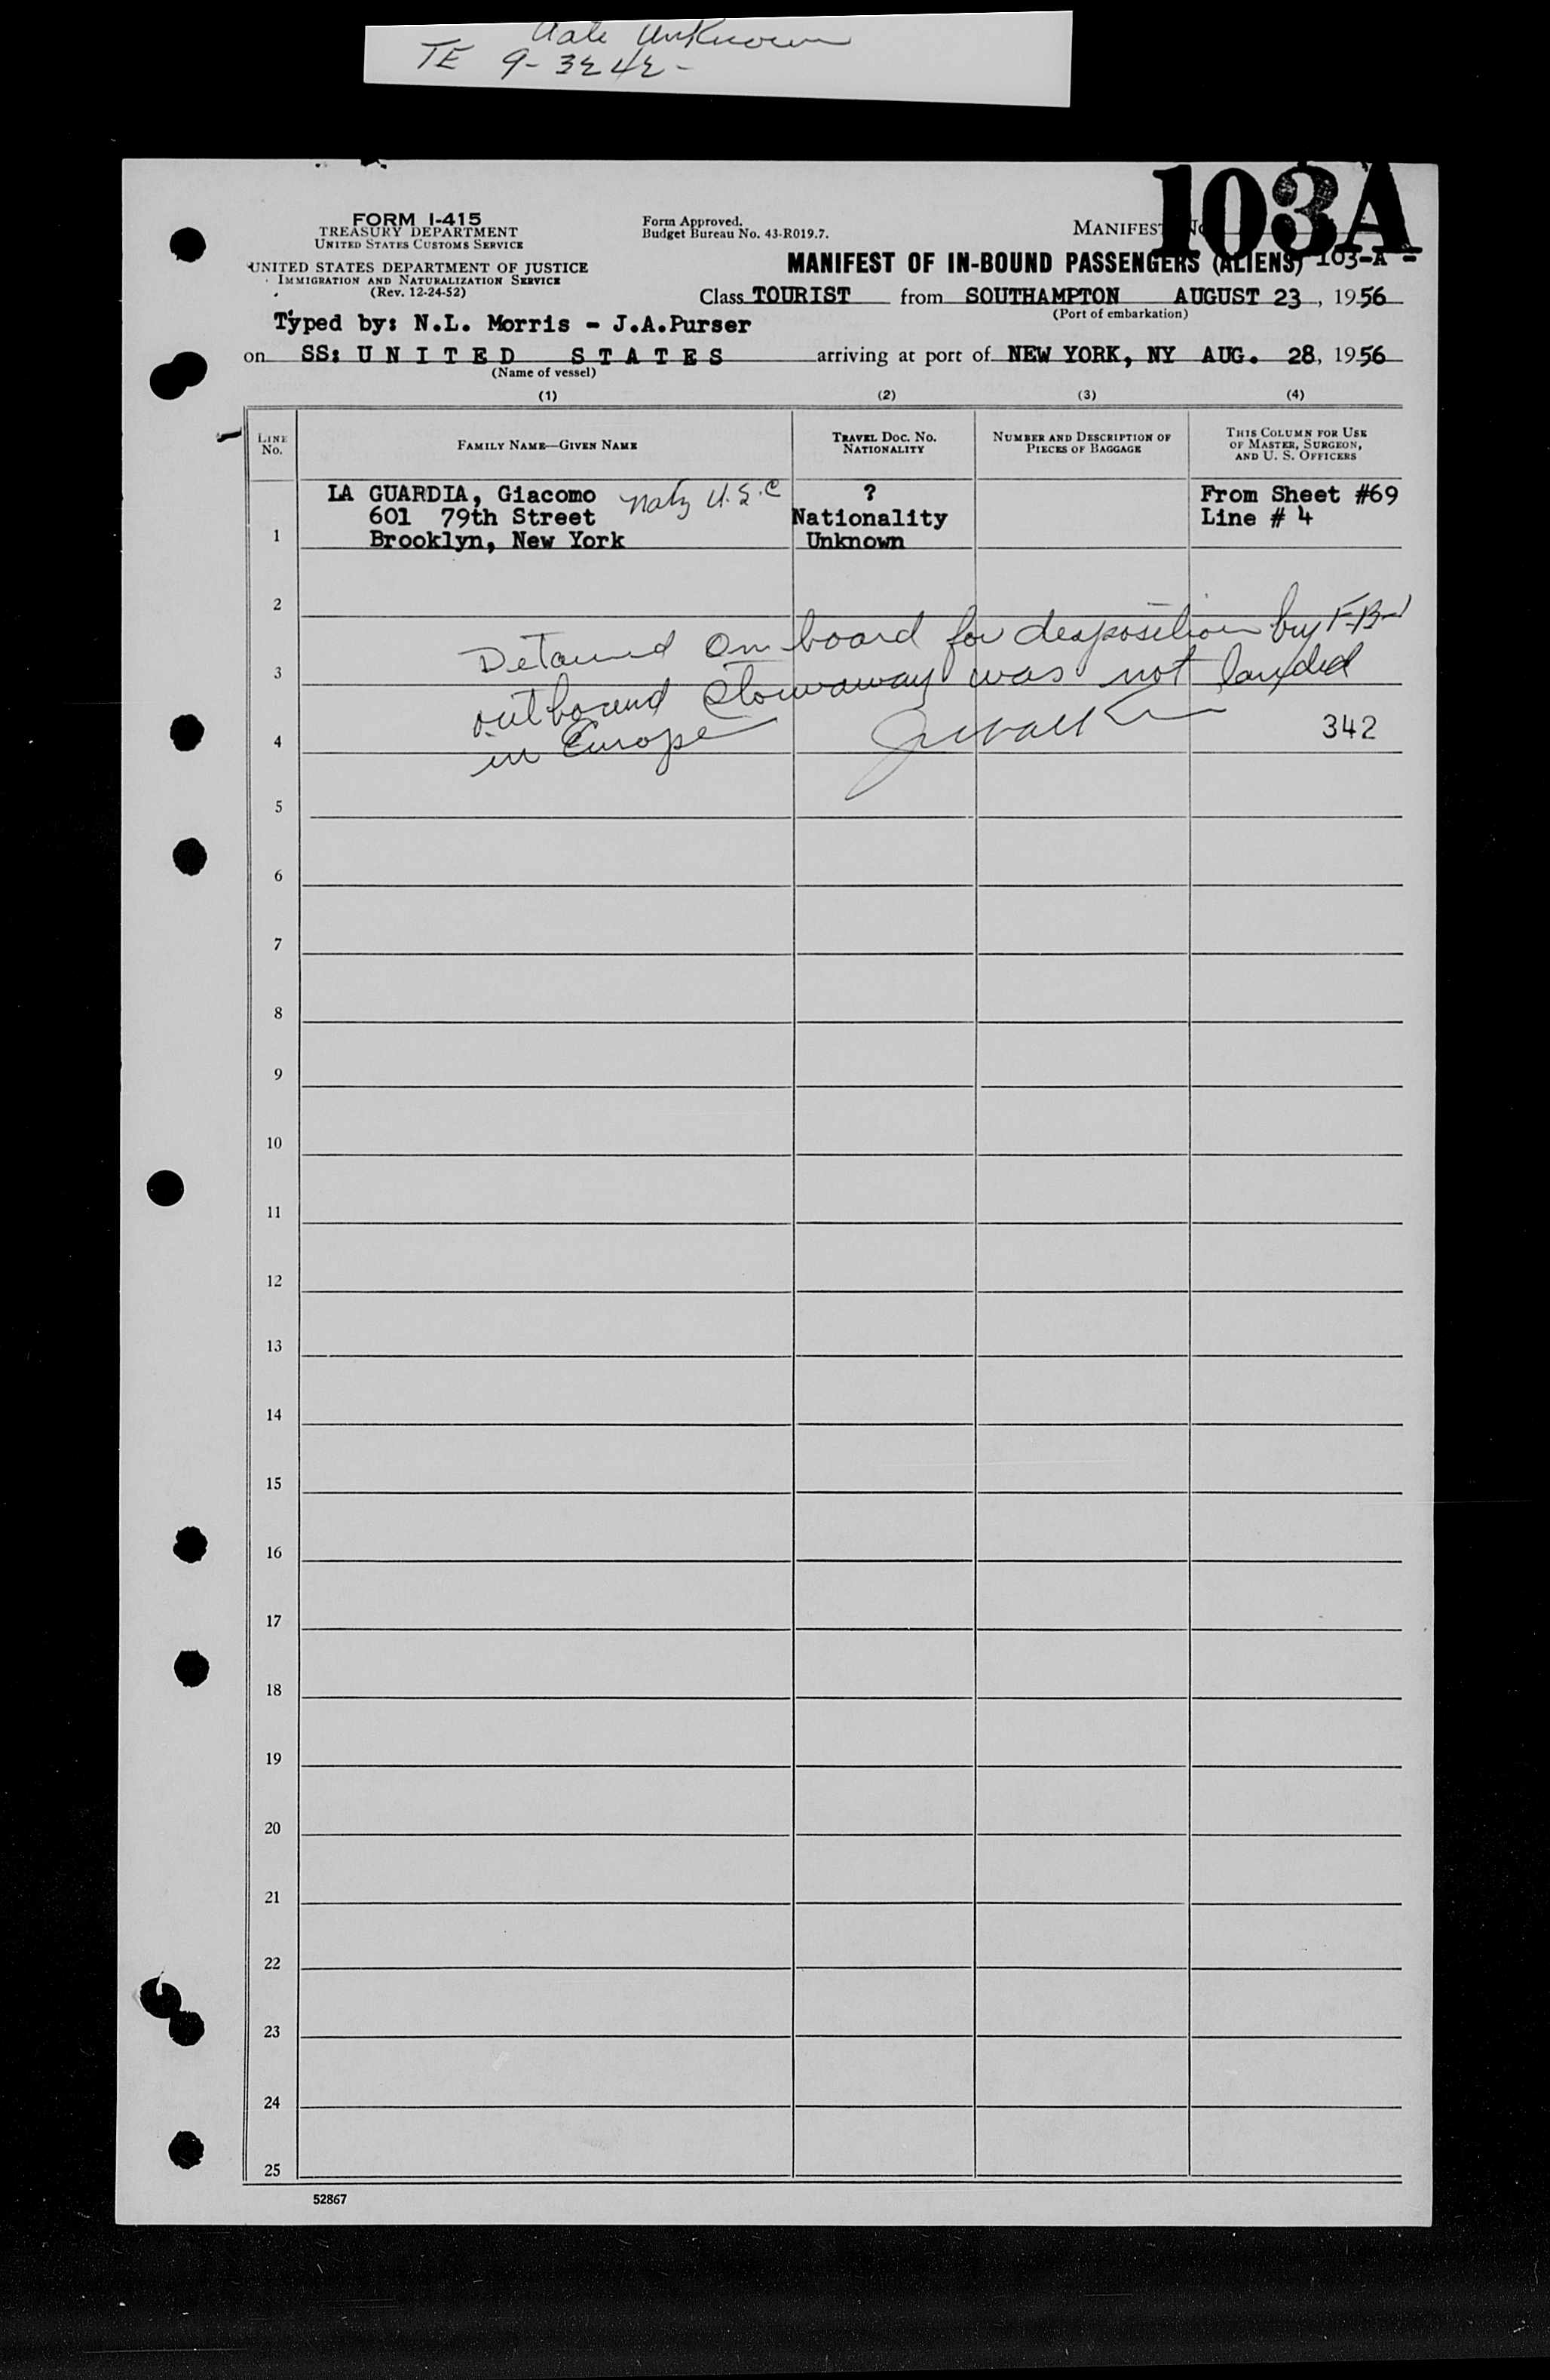 date Unknown
TE 9-3242-
103A
FORM I-415
TREASURY DEPARTMENT
UNITED STATES CUSTOMS SERVICE
Form Approved.
Budget Bureau No. 43-R019.7.
MANIFEST NO. 103-A -
UNITED STATES DEPARTMENT OF JUSTICE
IMMIGRATION AND NATURALIZATION SERVICE
(Rev. 12-24-52)
MANIFEST OF IN-BOUND PASSENGERS (ALIENS)
Class TOURIST from SOUTHAMPTON AUGUST 23, 1956
(Port of embarkation)
Typed by: N.L. Morris - J.A.Purser
on SS: UNITED STATES arriving at port of NEW YORK, NY AUG. 28, 1956
(Name of vessel)
(1) (2) (3) (4)
LINE No.
FAMILY NAME—GIVEN NAME
TRAVEL DOC. NO. NATIONALITY
NUMBER AND DESCRIPTION OF PIECES OF BAGGAGE
THIS COLUMN FOR USE OF MASTER, SURGEON, AND U. S. OFFICERS
LA GUARDIA, Giacomo Natz U.S.C ? From Sheet #69
601 79th Street Nationality Line # 4
1 Brooklyn, New York Unknown
2
Detained on board for desposition by F.B.I
3
outbound stowaway was not landed
in Europe
4 342
5
6
7
8
9
10
11
12
13
14
15
16
17
18
19
20
21
22
23
24
25
52867